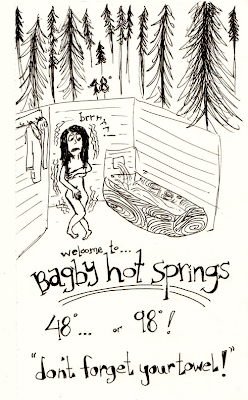 48°
brrr
welcome to...
Bagby hot springs
48°... or 98°!
"don't forget your towel!"